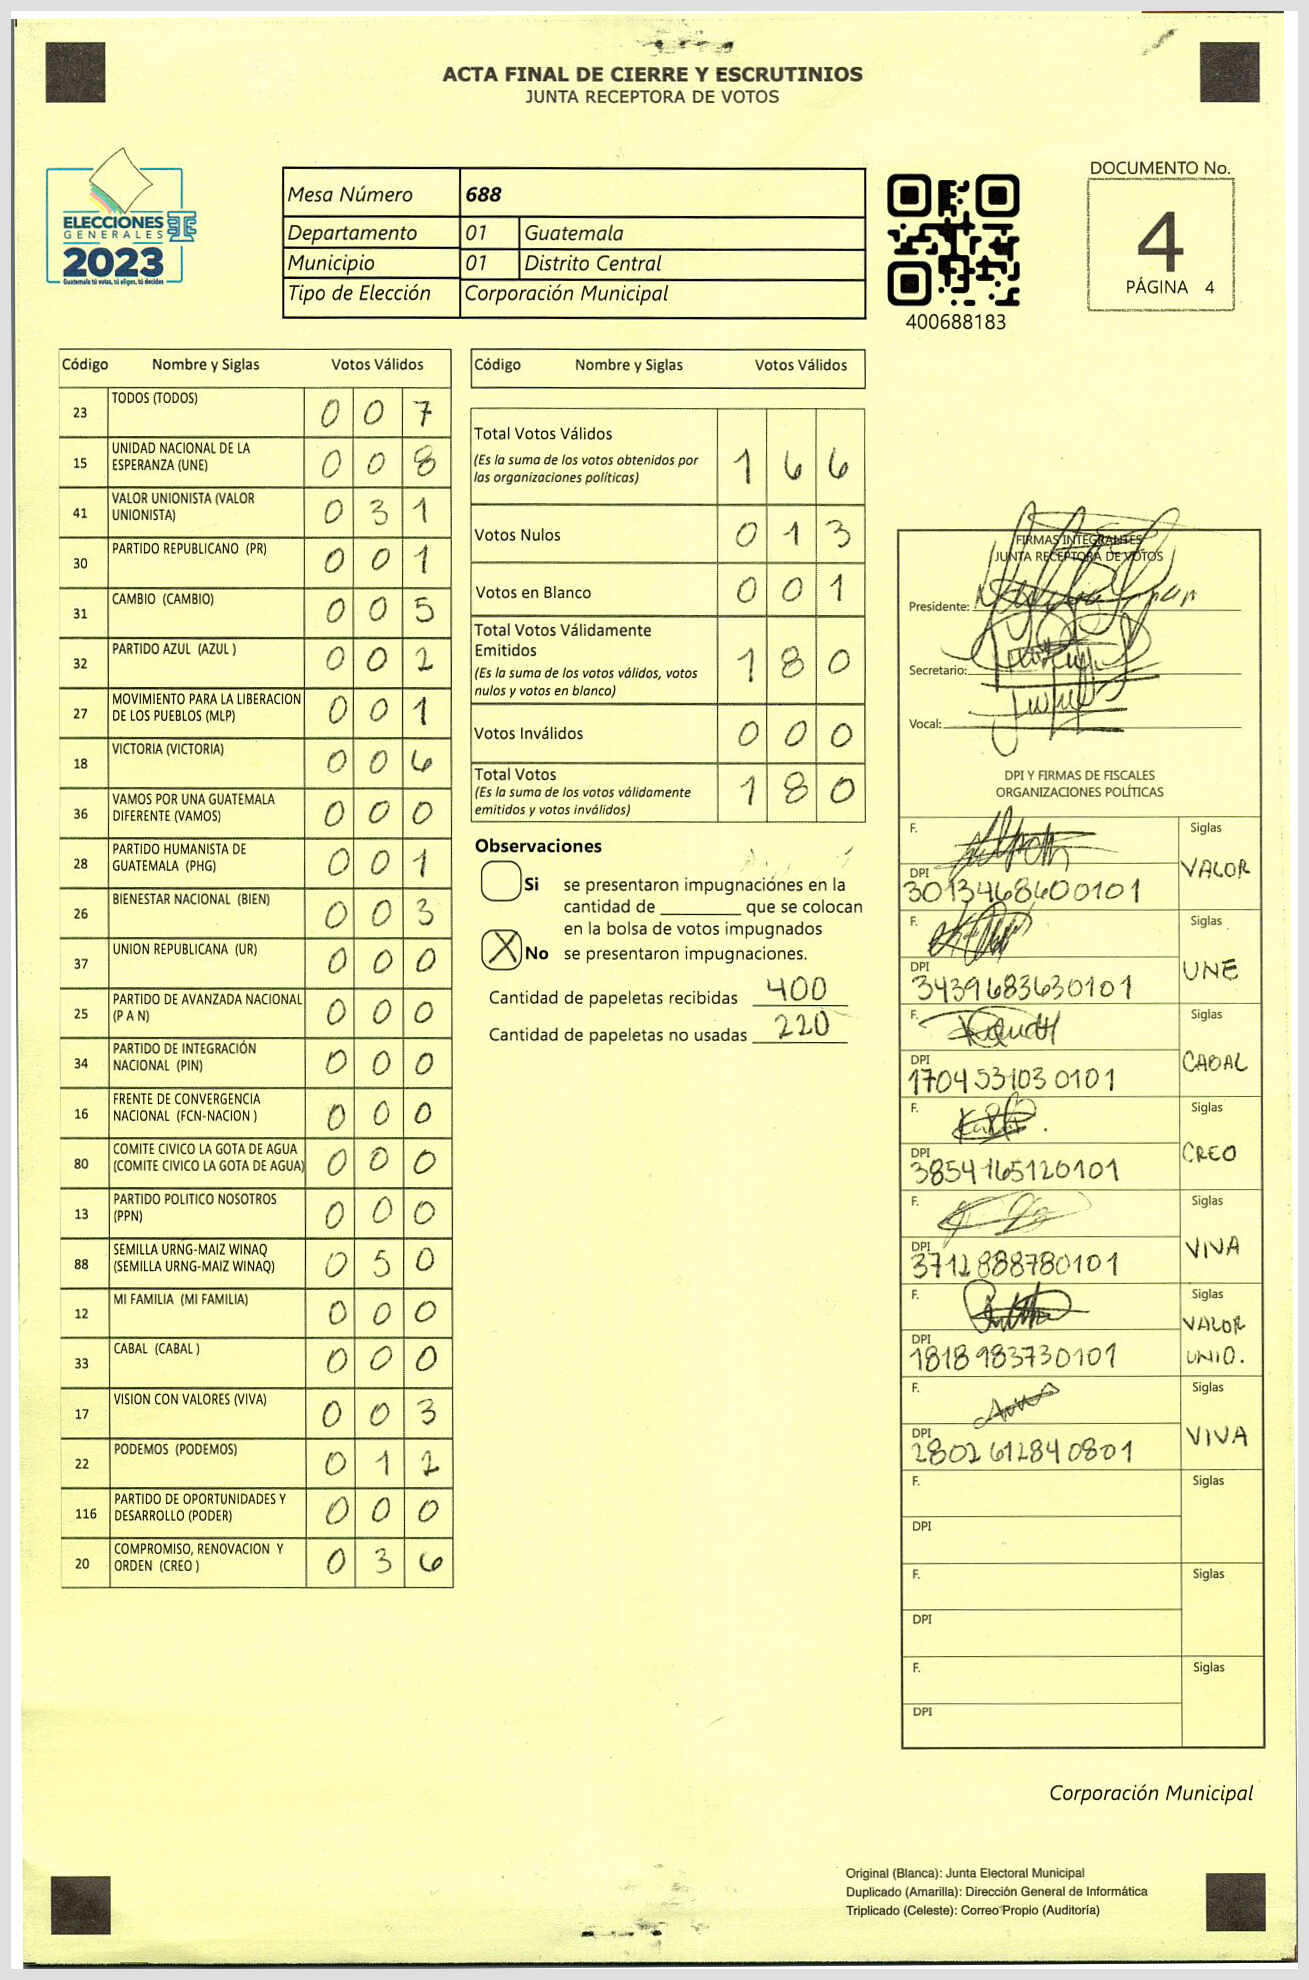 ACTA FINAL DE CIERRE Y ESCRUTINIOS
JUNTA RECEPTORA DE VOTOS
ELECCIONES
GENERALES
2023
Guatemala tú votas, tú eliges, tú decides
Mesa Número 688
Departamento 01 Guatemala
Municipio 01 Distrito Central
Tipo de Elección Corporación Municipal
400688183
DOCUMENTO No.
4
PÁGINA 4
Código Nombre y Siglas Votos Válidos
23 TODOS (TODOS) 0 0 7
15 UNIDAD NACIONAL DE LA ESPERANZA (UNE) 0 0 8
41 VALOR UNIONISTA (VALOR UNIONISTA) 0 3 1
30 PARTIDO REPUBLICANO (PR) 0 0 1
31 CAMBIO (CAMBIO) 0 0 5
32 PARTIDO AZUL (AZUL ) 0 0 2
27 MOVIMIENTO PARA LA LIBERACION DE LOS PUEBLOS (MLP) 0 0 1
18 VICTORIA (VICTORIA) 0 0 6
36 VAMOS POR UNA GUATEMALA DIFERENTE (VAMOS) 0 0 0
28 PARTIDO HUMANISTA DE GUATEMALA (PHG) 0 0 1
26 BIENESTAR NACIONAL (BIEN) 0 0 3
37 UNION REPUBLICANA (UR) 0 0 0
25 PARTIDO DE AVANZADA NACIONAL (P A N) 0 0 0
34 PARTIDO DE INTEGRACIÓN NACIONAL (PIN) 0 0 0
16 FRENTE DE CONVERGENCIA NACIONAL (FCN-NACION ) 0 0 0
80 COMITE CIVICO LA GOTA DE AGUA (COMITE CIVICO LA GOTA DE AGUA) 0 0 0
13 PARTIDO POLITICO NOSOTROS (PPN) 0 0 0
88 SEMILLA URNG-MAIZ WINAQ (SEMILLA URNG-MAIZ WINAQ) 0 5 0
12 MI FAMILIA (MI FAMILIA) 0 0 0
33 CABAL (CABAL ) 0 0 0
17 VISION CON VALORES (VIVA) 0 0 3
22 PODEMOS (PODEMOS) 0 1 2
116 PARTIDO DE OPORTUNIDADES Y DESARROLLO (PODER) 0 0 0
20 COMPROMISO, RENOVACION Y ORDEN (CREO ) 0 3 6
Código Nombre y Siglas Votos Válidos
Total Votos Válidos 1 6 6
(Es la suma de los votos obtenidos por
las organizaciones políticas)
Votos Nulos 0 1 3
Votos en Blanco 0 0 1
Total Votos Válidamente
Emitidos 1 8 0
(Es la suma de los votos válidos, votos
nulos y votos en blanco)
Votos Inválidos 0 0 0
Total Votos 1 8 0
(Es la suma de los votos válidamente
emitidos y votos inválidos)
Observaciones
Si se presentaron impugnaciones en la
cantidad de ________ que se colocan
en la bolsa de votos impugnados
X No se presentaron impugnaciones.
Cantidad de papeletas recibidas 400
Cantidad de papeletas no usadas 220
FIRMAS INTEGRANTES
JUNTA RECEPTORA DE VOTOS
Presidente:
Secretario:
Vocal:
DPI Y FIRMAS DE FISCALES
ORGANIZACIONES POLÍTICAS
F. Siglas
DPI 3013468600101 VALOR
F. Siglas
DPI 3439683630101 UNE
F. Siglas
DPI 1704531030101 CABAL
F. Siglas
DPI 3854165120101 CREO
F. Siglas
DPI 3712888780101 VIVA
F. Siglas
DPI 1818983730101 VALOR UNIO.
F. Siglas
DPI 2802612840801 VIVA
F. Siglas
DPI
F. Siglas
DPI
F. Siglas
DPI
Corporación Municipal
Original (Blanca): Junta Electoral Municipal
Duplicado (Amarilla): Dirección General de Informática
Triplicado (Celeste): Correo Propio (Auditoría)